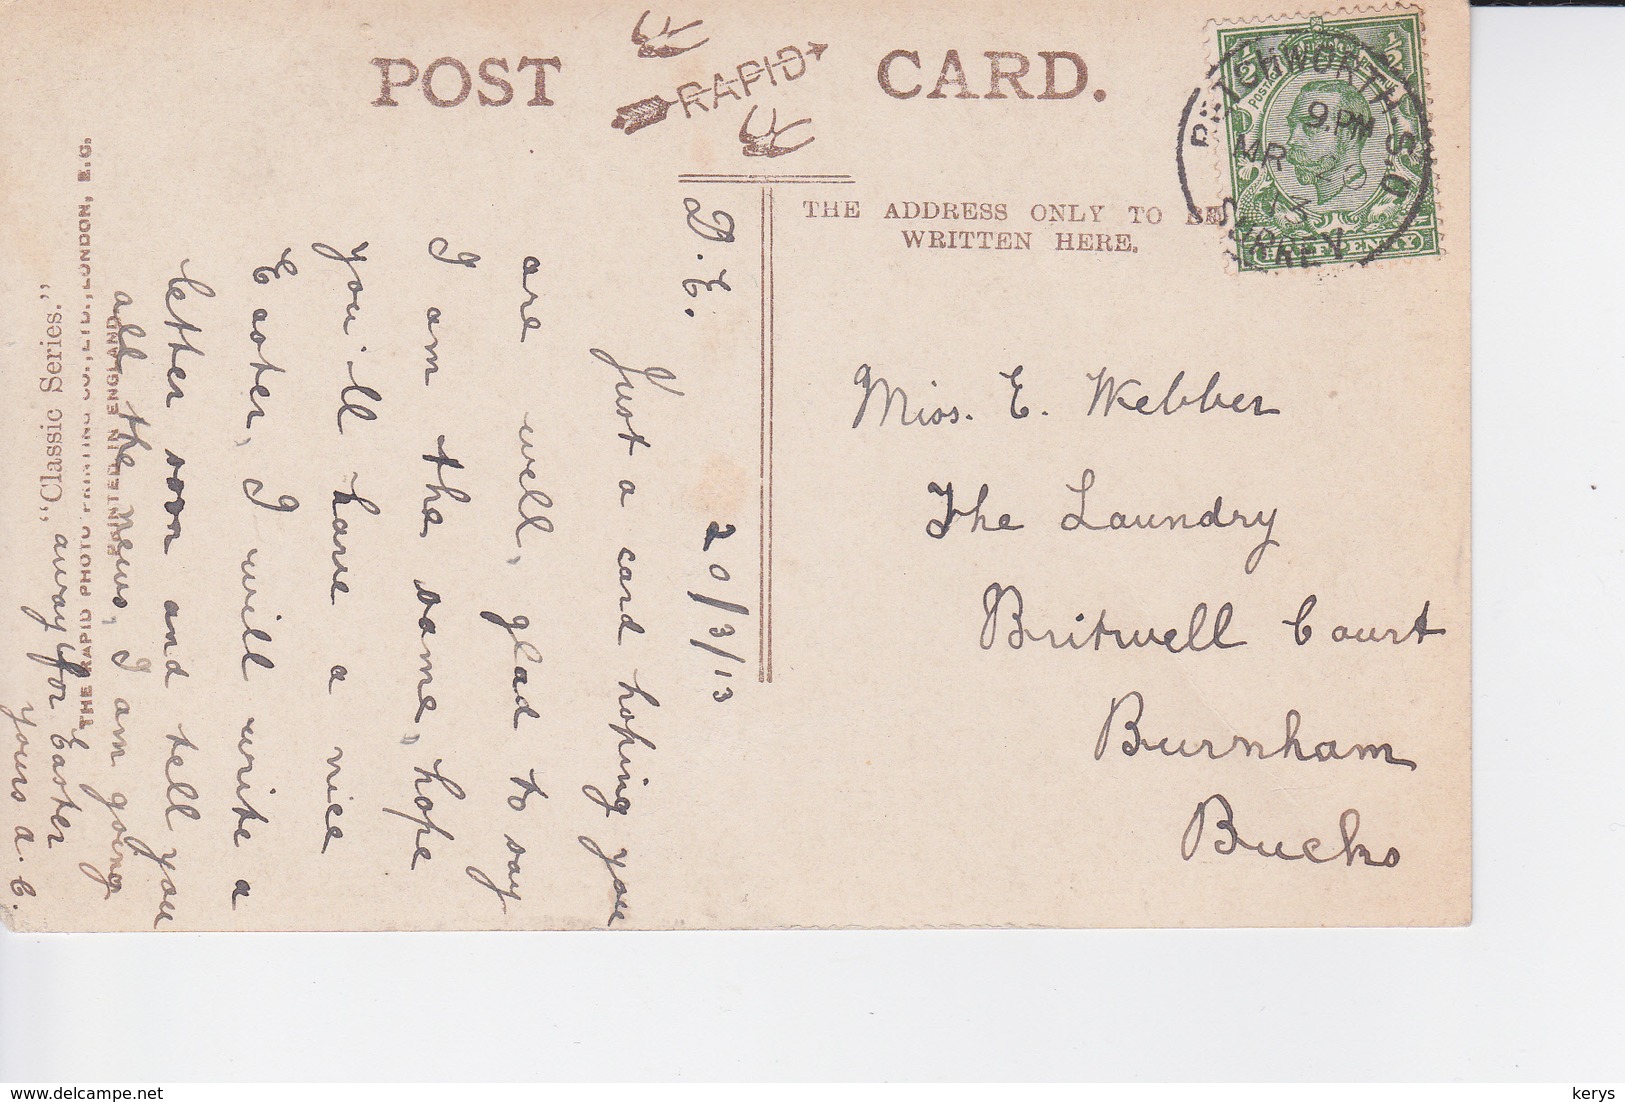 POST CARD.
RAPID
THE ADDRESS ONLY TO BE
WRITTEN HERE.
1/2 1/2
POSTAGE REVENUE
HALFPENNY
BETCHWORTH S.O
9.PM
MR 20
13
SURREY
D.E. 20/3/13
Just a card hoping you
are well, glad to say
I am the same, hope
you'll have a nice
Easter, I will write a
letter soon and tell you
all the news, I am going
away for Easter
yours A.C.
Miss. E. Webber
The Laundry
Britwell Court
Burnham
Bucks
"Classic Series."
THE RAPID PHOTO PRINTING CO., LTD., LONDON, E.C.
PRINTED IN ENGLAND
delcampe.net
kerys